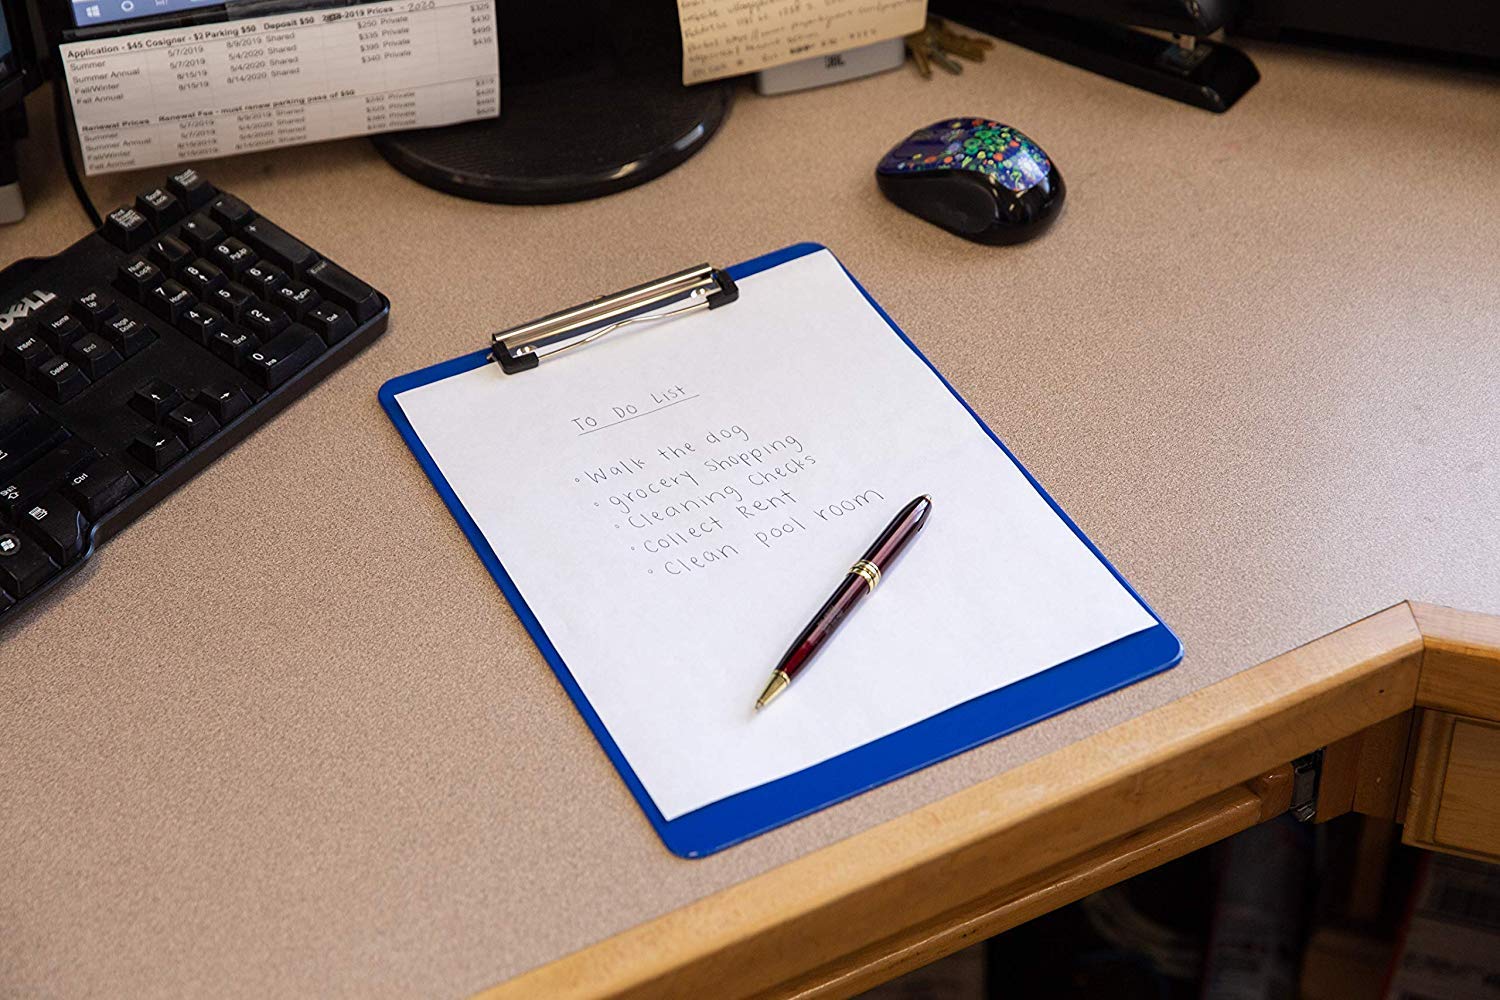 Application - $45 Cosigner - $2 Parking $50 Deposit $50 2018-2019 Prices - 2020
Summer 5/7/2019 8/9/2019 Shared $250 Private $325
Summer Annual 5/7/2019 5/4/2020 Shared $335 Private $430
Fall/Winter 8/15/19 5/4/2020 Shared $395 Private $495
Fall Annual 8/15/19 8/14/2020 Shared $340 Private $435
Renewal Prices Renewal Fee - must renew parking pass of $50
Summer 5/7/2019 8/9/2019 Shared Private
Summer Annual 5/7/2019 5/4/2020 Shared Private
Fall/Winter 8/15/2019 5/4/2020 Shared Private
Fall Annual 8/15/2019 Shared Private
JBL
DELL
Prnt Scrn SysRq
Scroll Lock
Pause
Insert
Home
Page Up
Delete
End
Page Down
Num Lock
/
*
-
7 Home
8
9 PgUp
4
5
6
1 End
2
3 PgDn
Enter
0 Ins
. Del
Ctrl
TO DO LIST
◦ Walk the dog
◦ grocery shopping
◦ Cleaning Checks
◦ Collect Rent
◦ Clean pool room